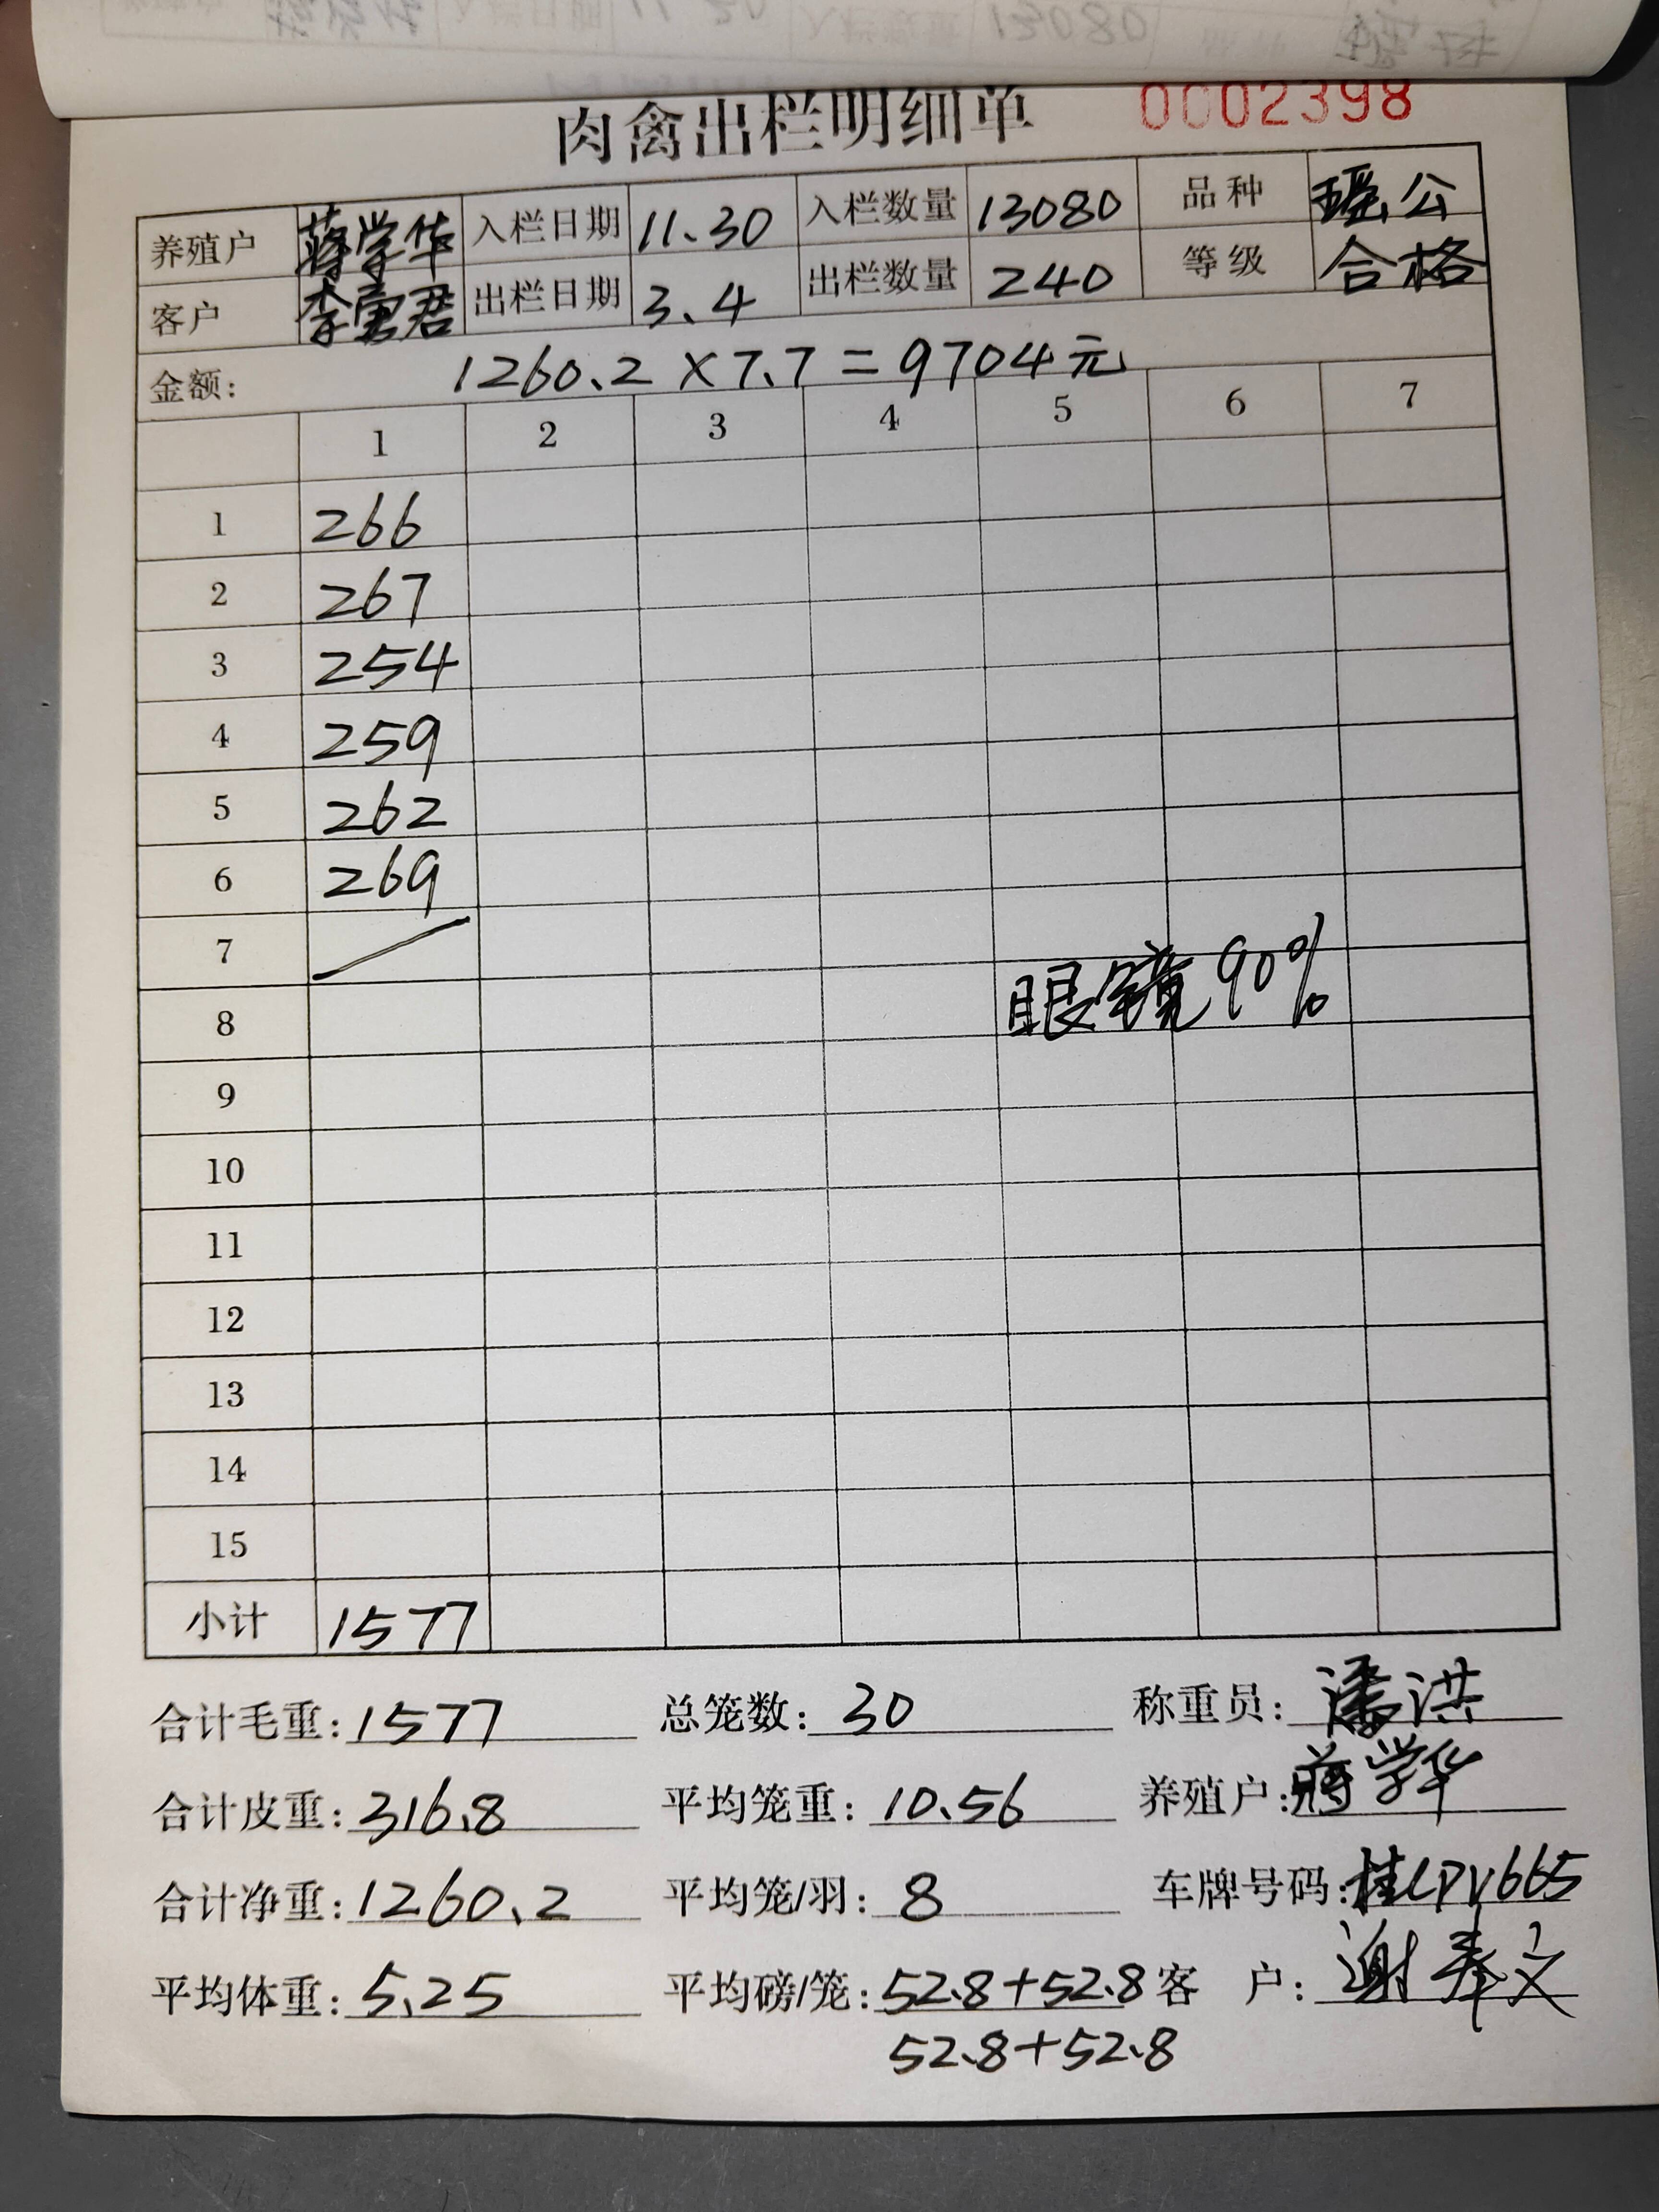 肉禽出栏明细单 0002398
养殖户 蒋学华 入栏日期 11.30 入栏数量 13080 品种 瑶公
客户 李勇君 出栏日期 3.4 出栏数量 240 等级 合格
金额: 1260.2×7.7=9704元
1 2 3 4 5 6 7
1 266
2 267
3 254
4 259
5 262
6 269
7
8 眼镜90%
9
10
11
12
13
14
15
小计 1577
合计毛重: 1577 总笼数: 30 称重员: 潘洪
合计皮重: 316.8 平均笼重: 10.56 养殖户: 蒋学华
合计净重: 1260.2 平均笼/羽: 8 车牌号码: 桂CPV665
平均体重: 5.25 平均磅/笼: 52.8+52.8 客 户: 谢奉文
52.8+52.8